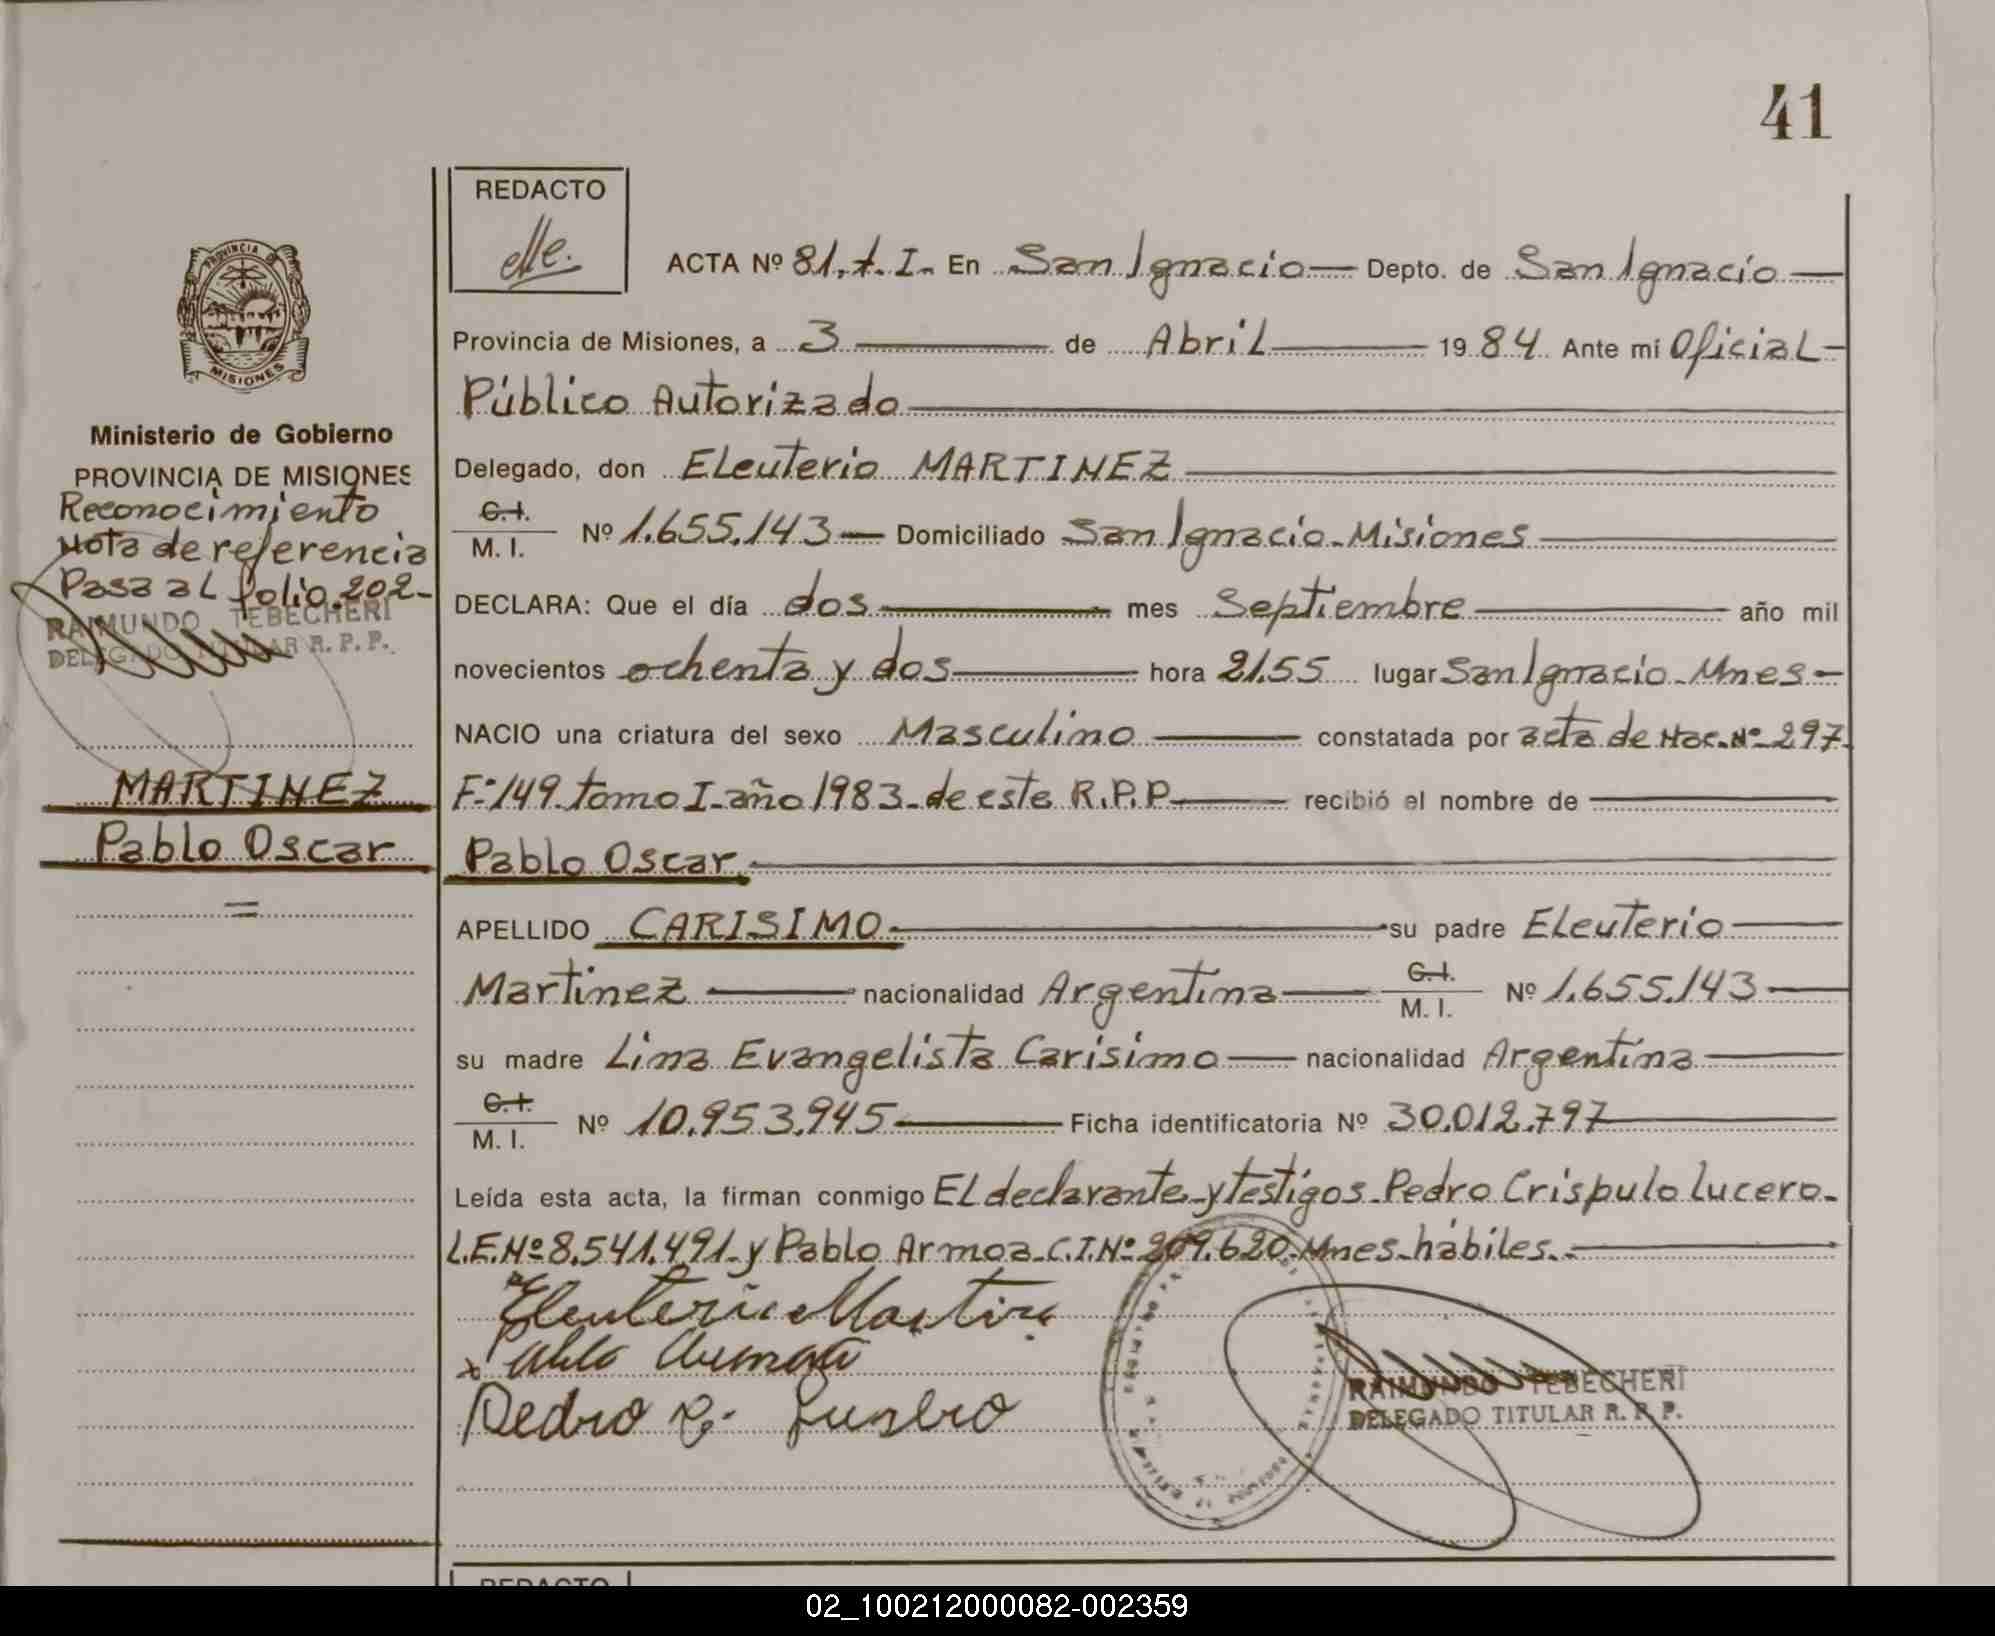 41
REDACTO
ACTA Nº 81. t. I. En San Ignacio Depto. de San Ignacio
Provincia de Misiones, a 3 de Abril 1984 Ante mí Oficial
Público Autorizado
Delegado, don Eleuterio MARTINEZ
C.I. M. I. Nº 1.655.143 Domiciliado San Ignacio - Misiones
DECLARA: Que el día dos mes Septiembre año mil
novecientos ochenta y dos hora 21.55 lugar San Ignacio - Mnes
NACIO una criatura del sexo Masculino constatada por acta de Nac. Nº 297
Fº 149 tomo I - año 1983 - de este R.P.P recibió el nombre de
Pablo Oscar
APELLIDO CARISIMO su padre Eleuterio
Martinez nacionalidad Argentina C.I. M. I. Nº 1.655.143
su madre Lina Evangelista Carísimo nacionalidad Argentina
C.I. M. I. Nº 10.953.945 Ficha identificatoria Nº 30.012.797
Leída esta acta, la firman conmigo El declarante y testigos - Pedro Críspulo Lucero -
L.E. Nº 8.541.491 - y Pablo Armoa - C.I. Nº 209.620 - Mnes - hábiles.
Eleuterio Martine
Pablo Armoa
Pedro C. Lucero
RAIMUNDO TEBECHERI
DELEGADO TITULAR R. P. P.
PROVINCIA DE
MISIONES
Ministerio de Gobierno
PROVINCIA DE MISIONES
Reconocimiento
Nota de referencia
Pasa al folio 202 -
RAIMUNDO TEBECHERI
DELEGADO TITULAR R. P. P.
MARTINEZ
Pablo Oscar
=
REDACTO
02_100212000082-002359